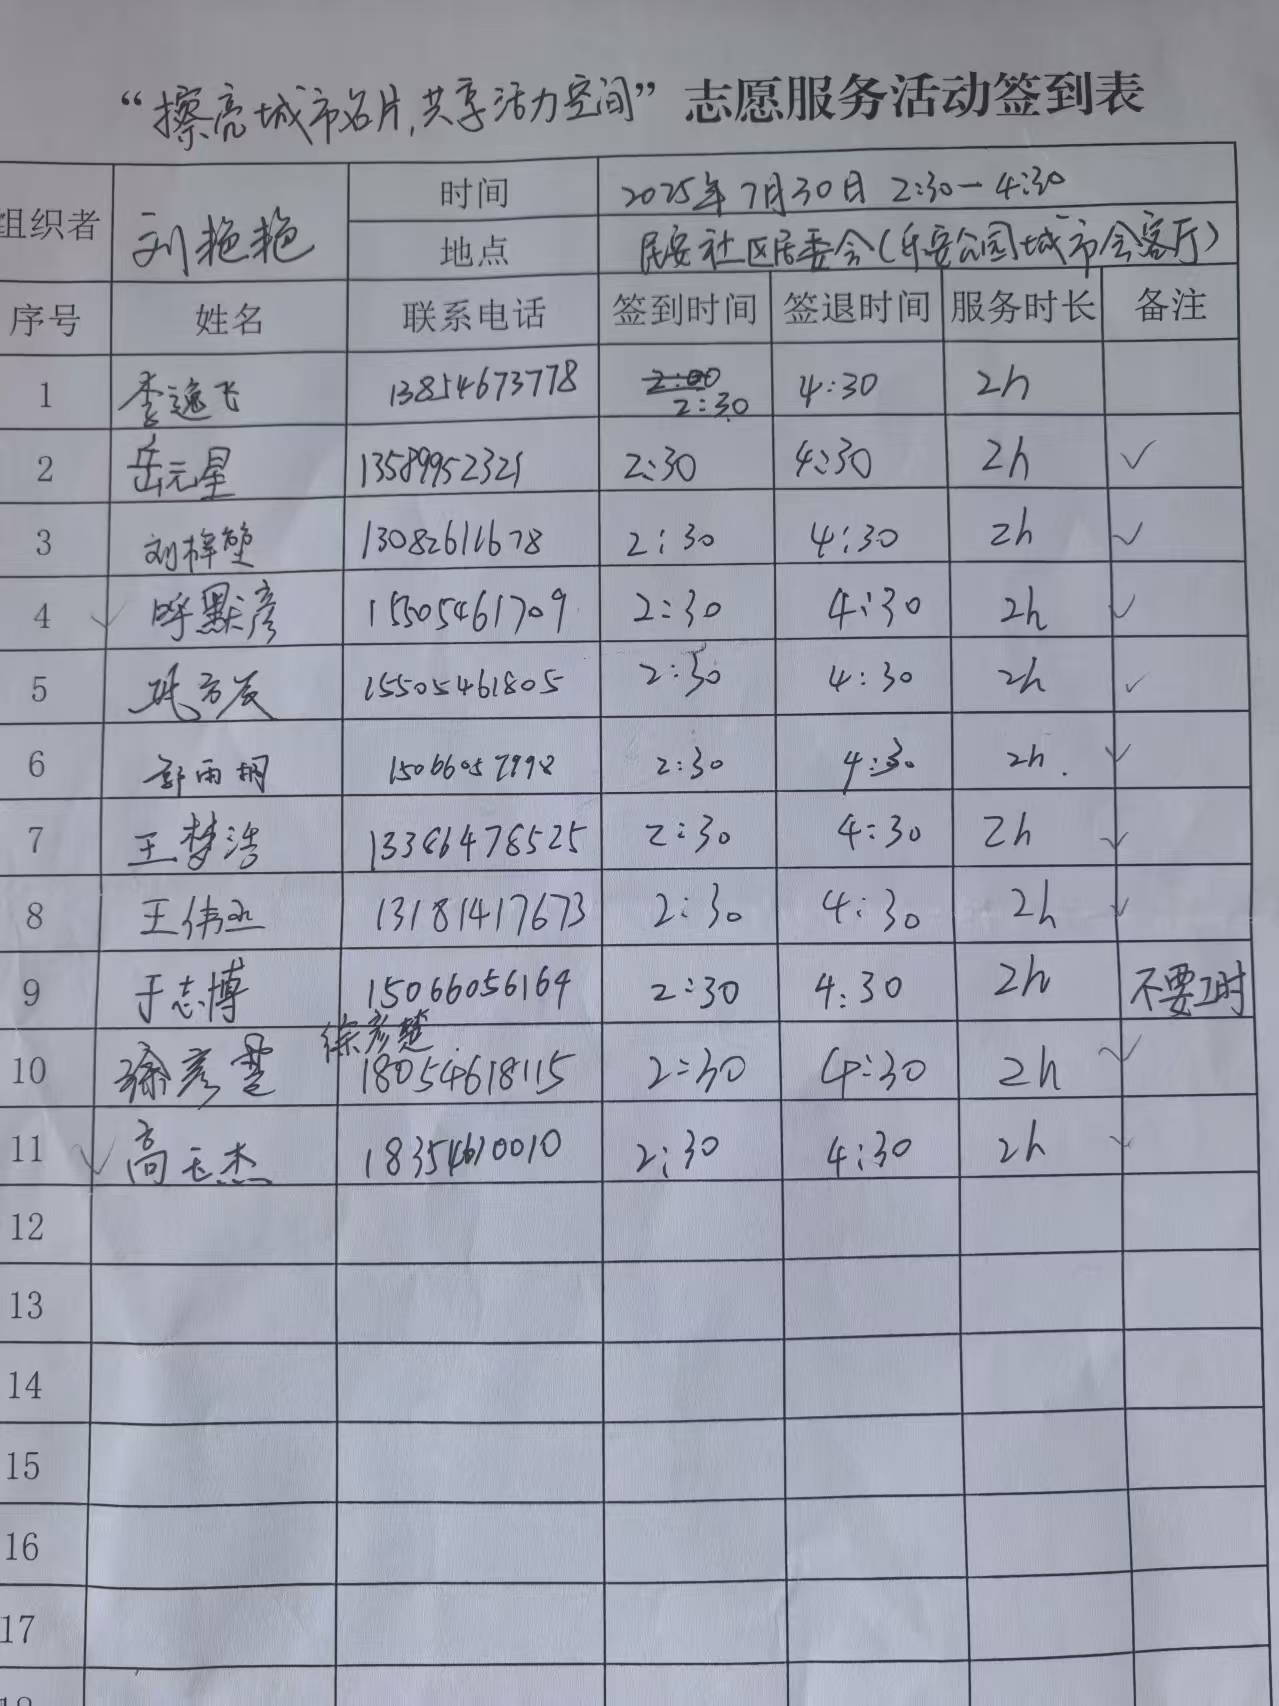 “擦亮城市名片,共享活力空间”志愿服务活动签到表
组织者 刘艳艳 时间 2025年7月30日 2:30-4:30
地点 民安社区居委会(乐安公园城市会客厅)
序号 姓名 联系电话 签到时间 签退时间 服务时长 备注
1 李逸飞 13854673778 2:00 2:30 4:30 2h
2 岳元星 13589952321 2:30 4:30 2h ✓
3 刘梓堃 13082611678 2:30 4:30 2h ✓
4 ✓ 呼默彦 15505461709 2:30 4:30 2h ✓
5 15505461805 2:30 4:30 2h ✓
6 郭雨桐 2:30 4:30 2h. ✓
7 王梦浩 2:30 4:30 2h ✓
8 王伟丞 13181417673 2:30 4:30 2h ✓
9 于志博 15066056164 2:30 4:30 2h 不要工时
徐彦楚
10 徐彦 18054618115 2:30 4:30 2h ✓
11 ✓ 高玉杰 18354610010 2:30 4:30 2h ✓
12
13
14
15
16
17
18